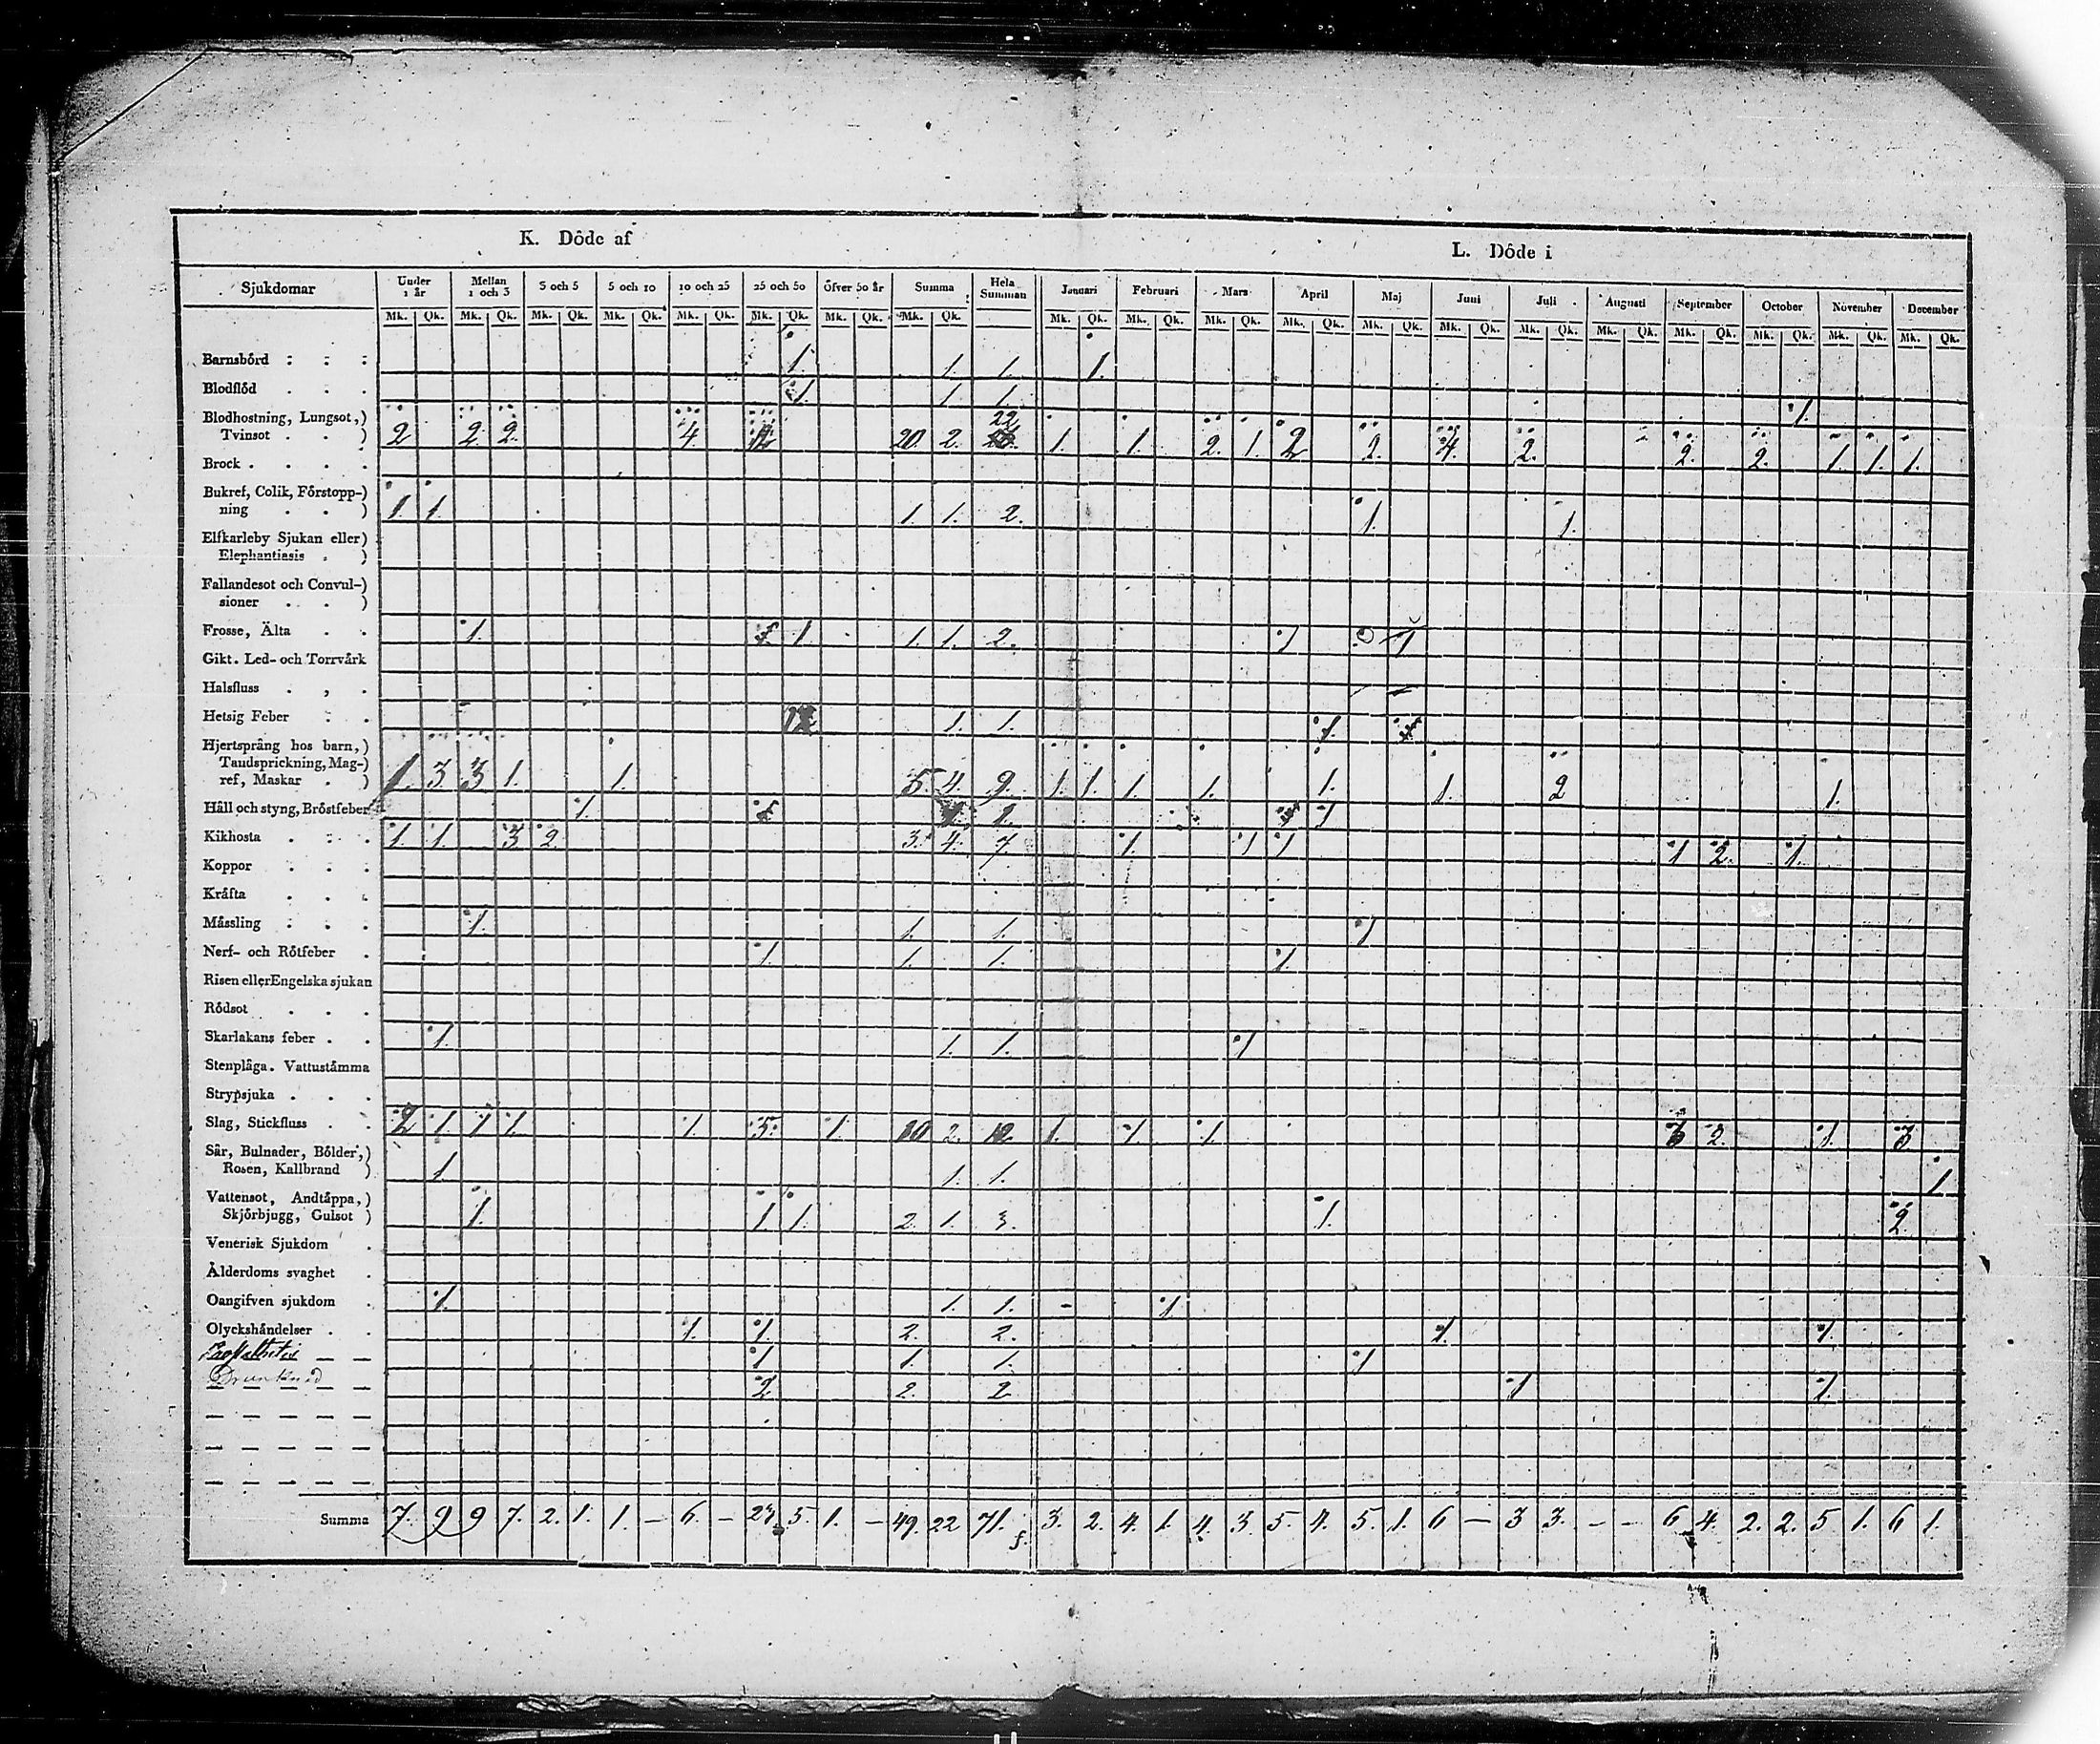 K. Döde af L. Döde i
Sjukdomar Under 1 år Mellan 1 och 3 3 och 5 5 och 10 10 och 25 25 och 50 öfver 50 år Summa Hela Summan Januari Februari Mars April Maj Juni Juli Augusti September October November December
Mk. Qk. Mk. Qk. Mk. Qk. Mk. Qk. Mk. Qk. Mk. Qk. Mk. Qk. Mk. Qk. Mk. Qk. Mk. Qk. Mk. Qk. Mk. Qk. Mk. Qk. Mk. Qk. Mk. Qk. Mk. Qk. Mk. Qk. Mk. Qk. Mk. Qk. Mk. Qk.
Barnsbörd 1. 1. 1. 1.
Blodflöd 1. 1 1. 1.
Blodhostning, Lungsot,) 22
Tvinsot . . ) 2 2. 2. 4. 12 20. 2. 1. 1. 2. 1. 2 2. 4. 2. 2. 2. 1. 1. 1.
Brock . . . .
Bukref, Colik, Förstopp-)
ning . . ) 1. 1. 1. 1. 2. 1. 1.
Elfkarleby Sjukan eller)
Elephantiasis . )
Fallandesot och Convul-)
sioner . . )
Frosse, Älta . . 1. 1 1. 1. 2. 1 1
Gikt. Led- och Torrvärk
Halsfluss . , .
Hetsig Feber . . 1. 1. 1.
Hjertsprång hos barn,)
Tandsprickning, Mag-)
ref, Maskar . ) 1. 3. 3 1. 1. 5. 4. 9. 1. 1. 1. 1. 1. 1. 2 1.
Håll och styng, Bröstfeber 1. 1. 1
Kikhosta . . . 1. 1. 3 2. 3. 4. 7. 1. 1 1 1 2. 1.
Koppor . . .
Kräfta . . .
Mässling . . . 1. 1. 1. 1
Nerf- och Rötfeber . 1. 1. 1. 1.
Risen eller Engelska sjukan
Rödsot . . .
Skarlakans feber . . 1. 1. 1. 1
Stenplåga. Vattustämma
Strypsjuka . . .
Slag, Stickfluss . . 2 1. 1 1. 1. 5. 1. 10 2. 12. 1. 1. 1. 3 2. 1. 3.
Sår, Bulnader, Bölder,)
Rosen, Kallbrand ) 1 1. 1. 1
Vattensot, Andtäppa,)
Skjörbjugg, Gulsot ) 1. 1 1. 2. 1. 3. 1. 2.
Venerisk Sjukdom .
Ålderdoms svaghet .
Oangifven sjukdom . 1. 1. 1. 1
Olyckshändelser . . 1. 1. 2. 2. 1 1.
1 1. 1. 1
Drunknad 2 2. 2 1 1
Summa 7. 9 9 7. 2. 1. 1. – 6. – 23 5. 1. – 49. 22 71. 3. 2. 4. 1. 4. 3. 5. 4. 5. 1. 6 – 3 3. – – 6. 4. 2. 2. 5 1. 6 1.